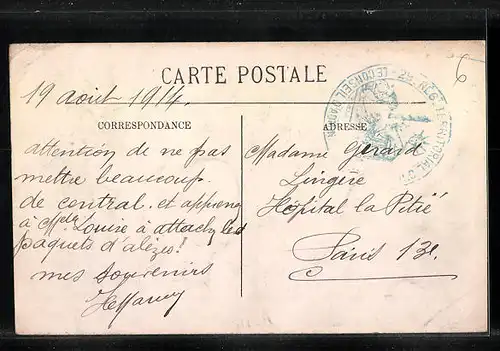 CARTE POSTALE
19 Août 1914.
CORRESPONDANCE
attention de ne pas
mettre beaucoup
de central. et apprenez
à Melle Louise à attacher les
paquets d'alèzes!
mes souvenirs
ADRESSE
Madame Gérard
Lingère
Hôpital la Pitié
Paris 13e.
LE CONSEIL D'ADMON
6